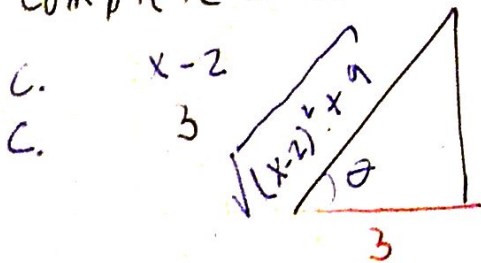 C. x-2
C. 3
√(x-2)² + 9
θ
3